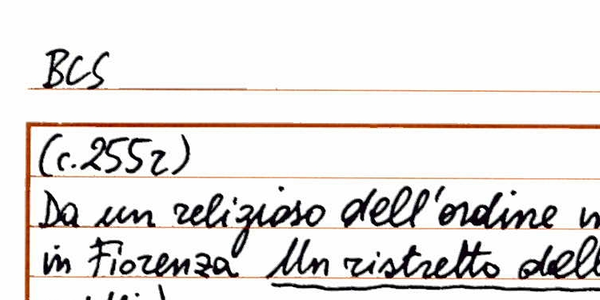 BCS
(c.255r)
Da un religioso dell'ordine
in Fiorenza Un ristretto dell